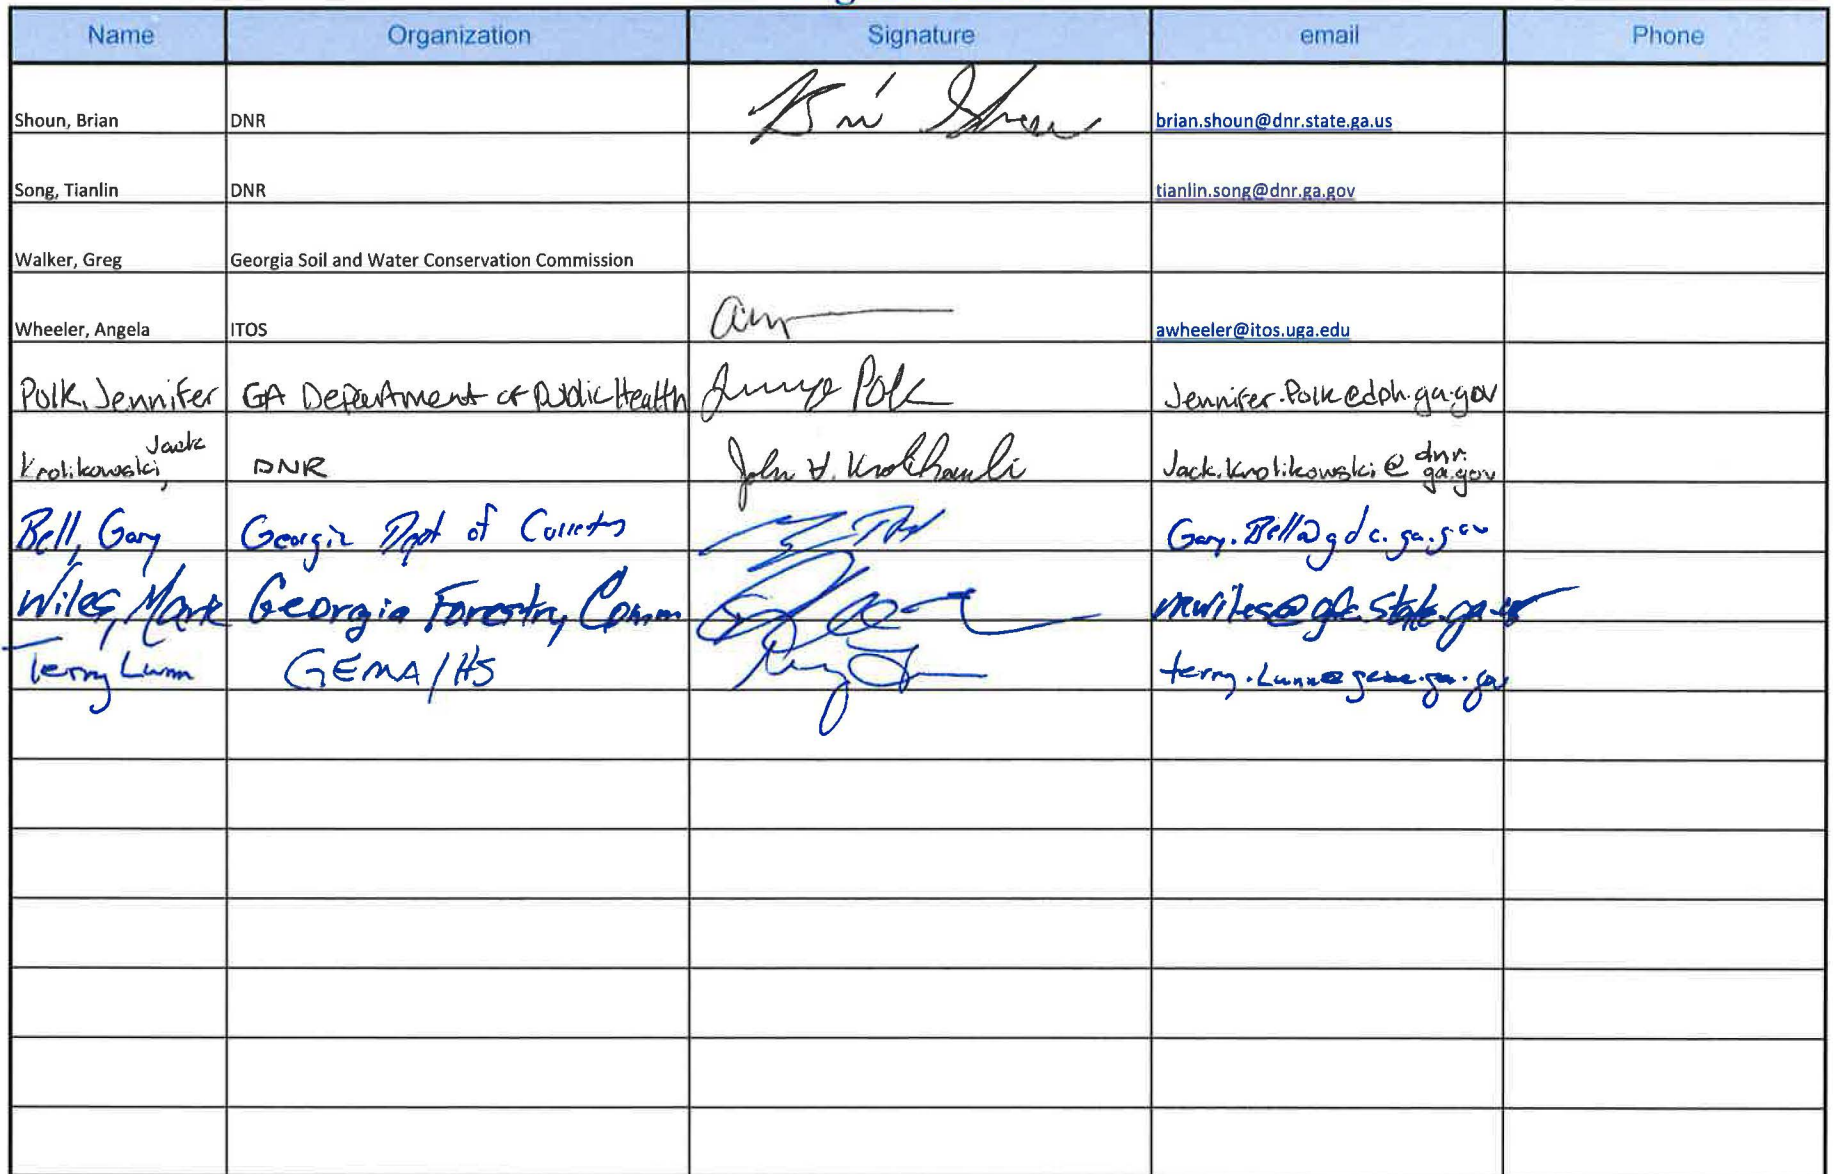 Name Organization Signature email Phone
Shoun, Brian DNR Bri Shoun brian.shoun@dnr.state.ga.us
Song, Tianlin DNR tianlin.song@dnr.ga.gov
Walker, Greg Georgia Soil and Water Conservation Commission
Wheeler, Angela ITOS awheeler@itos.uga.edu
Polk, Jennifer GA Department of Public Health Polk Jennifer.Polk@dph.ga.gov
Krolikowski, Jack DNR John V. Krolikowski Jack.Krolikowski@dnr.ga.gov
Bell, Gary Georgia Dept of Gary.Bell@gdc.ga.gov
Wiles, Mark Georgia Forestry Comm mwiles@gfc.state.ga.us
Terry Lunn GEMA/HS terry.Lunn@gema.ga.gov